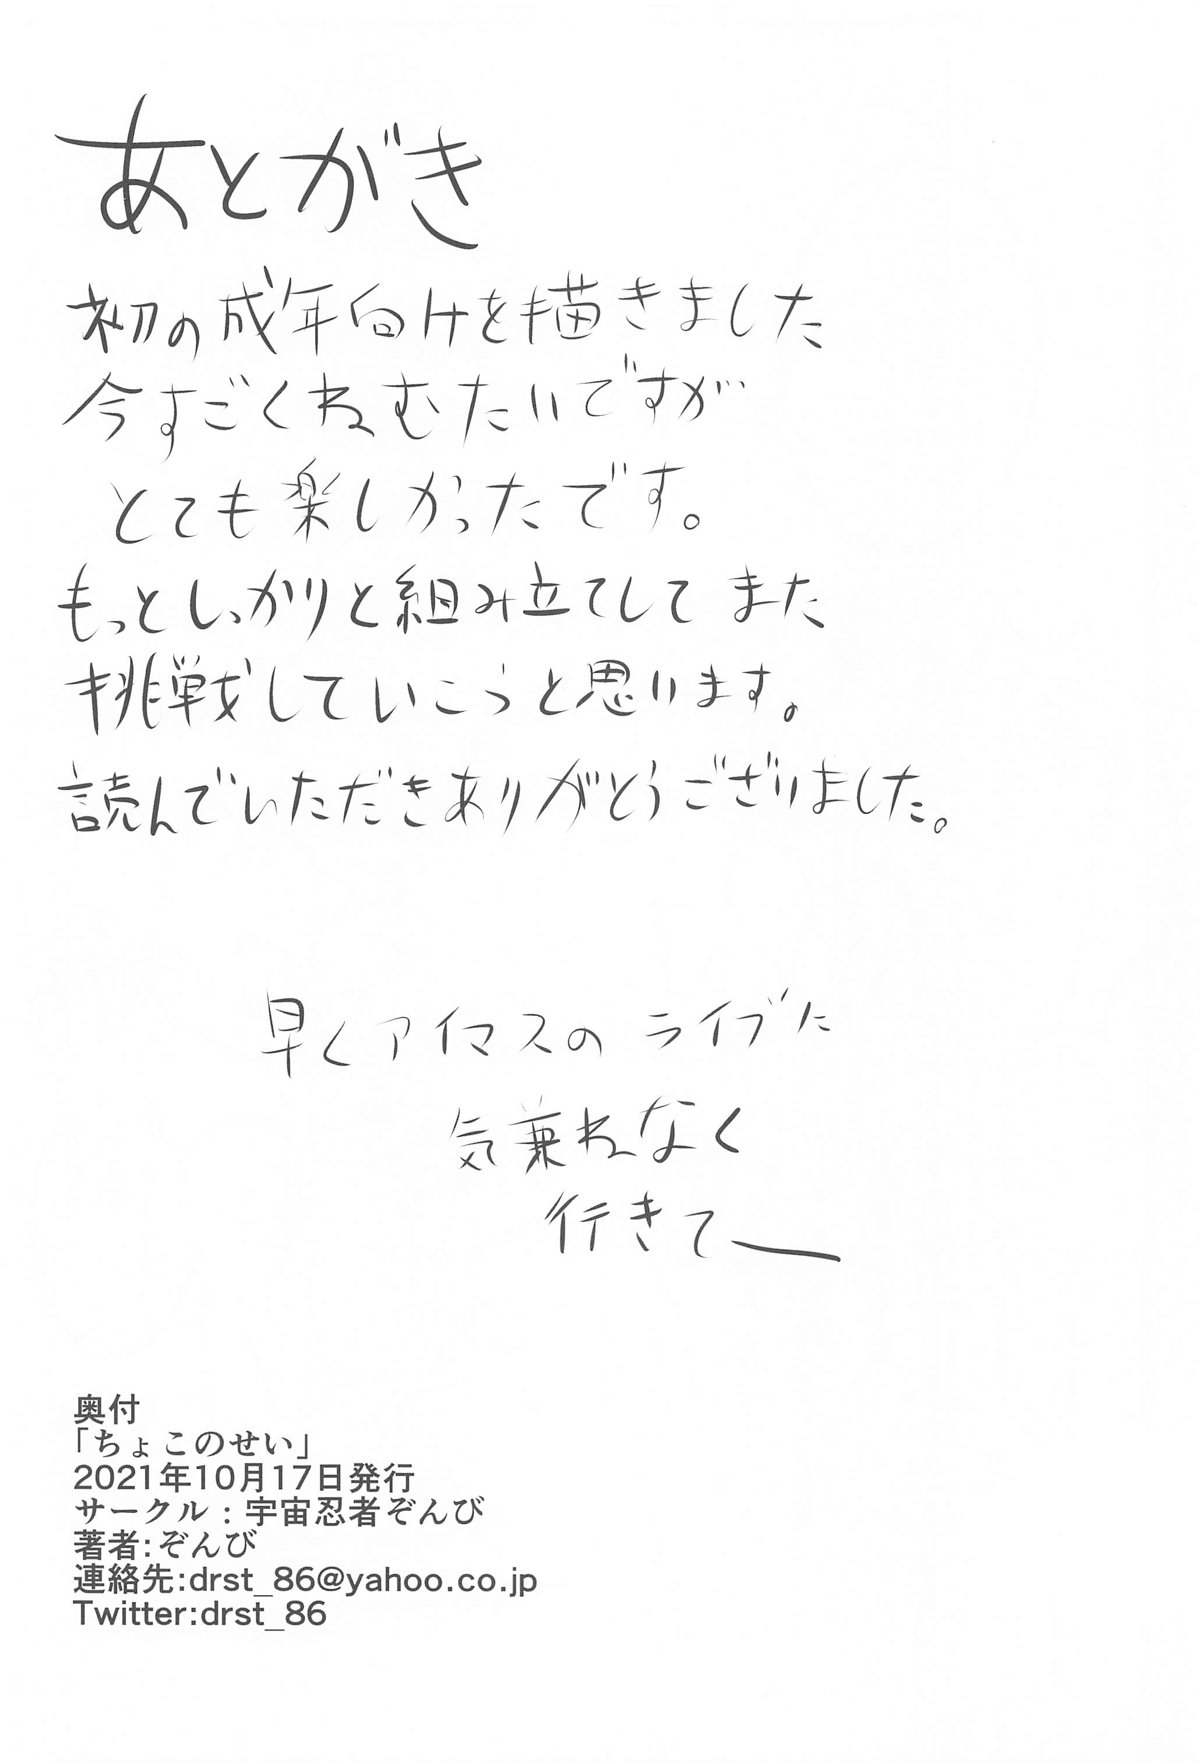 あとがき
初の成年向けを描きました
今すごくねむたいですが
とても楽しかったです。
もっとしっかりと組み立てして また
挑戦していこうと思います。
読んでいただきありがとうございました。
早くアイマスの ライブに
気兼ねなく
行きてー
奥付
「ちょこのせい」
2021年10月17日発行
サークル：宇宙忍者ぞんび
著者:ぞんび
連絡先:drst_86@yahoo.co.jp
Twitter:drst_86